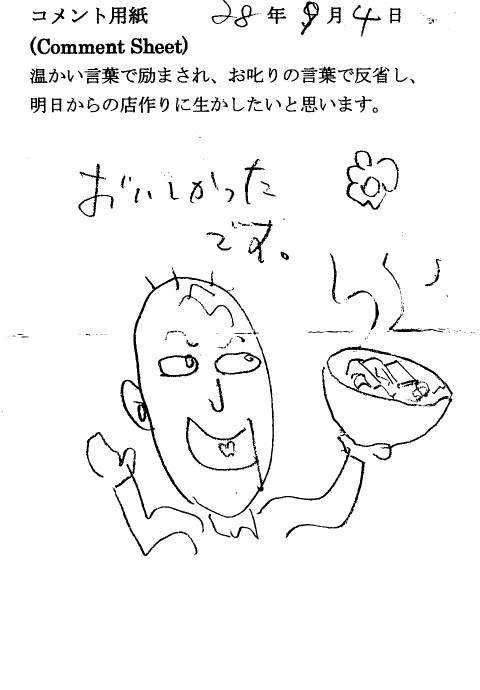 コメント用紙 28年9月4日
(Comment Sheet)
温かい言葉で励まされ、お叱りの言葉で反省し、
明日からの店作りに生かしたいと思います。
おいしかった
です。